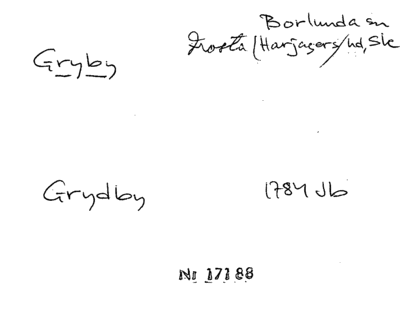 Borlunda sn
Gryby Frosta (Harjagers) hd, Sk
Grydby 1784 Jb
Nr 17188